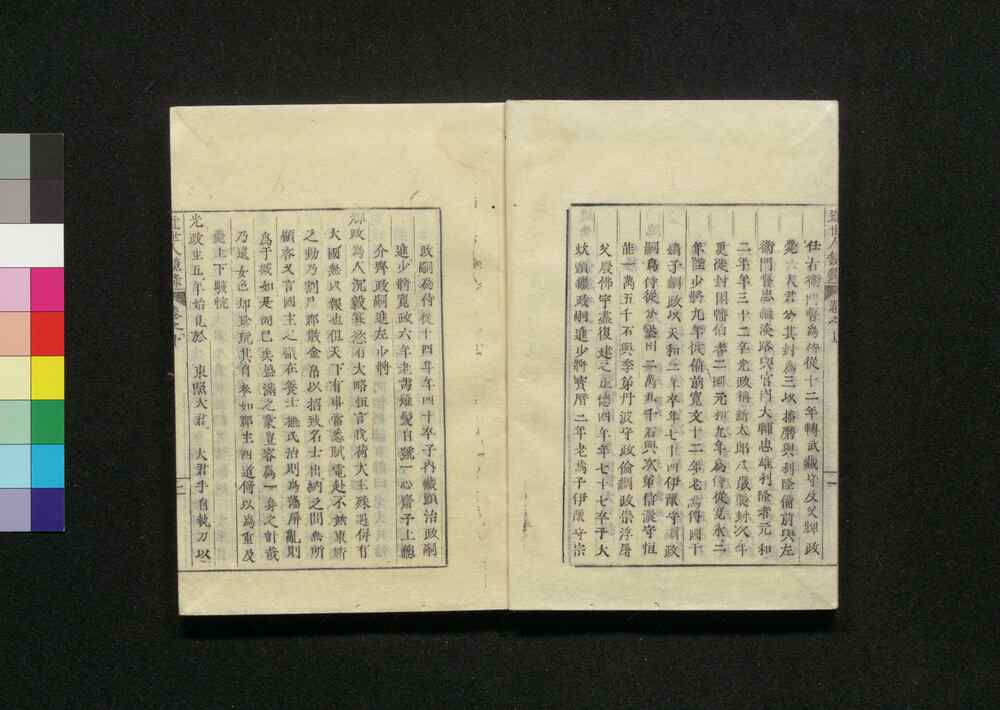 任右衛門督為侍從十二年轉武藏守及父輝政
薨六大君分其封為三以播磨與利隆備前與左
衛門督忠繼淡路與宮内大輔忠雄利隆者元和
二年年三十三卒光政稱新太郎八歳襲封次年
更徙封因幡伯耆二國元和九年為侍從寛永三
年進少將九年徙備前寛文十二年老為傳國于
嫡子綱政以天和二年卒年七十四伊豫守綱政
嗣為侍從分墾田二萬五千石與次弟信濃守恒
能一萬五千石與季弟丹波守政倫綱政崇浮屠
父殿佛宇盡復建之正德四年年七十七卒子大
炊頭繼政嗣進少將寶曆二年老為子伊豫守宗
政嗣為侍從十四年年四十卒子内藏頭治政嗣
進少將寛政六年老薙髮自號一心齋子上總
介齊政嗣進左少將
輝政為人沉毅寡慾有大略恒言我荷大王殊遇併有
大國無以報也但天下有事當悉賦電赴不無東所
之動乃割凡鄙散金帛以招致名士出納之間無所
顧容又言國主之職在養士撫民治則為藩屏亂則
為干城如是而已矣盈滿之棄豈容為一身之計哉
乃遠女色却珍玩其自奉如鄙士四道倚以為重及
薨上下駭惋
光政生五年始見於 東照大君 大君手自執刀以
近世人鏡錄